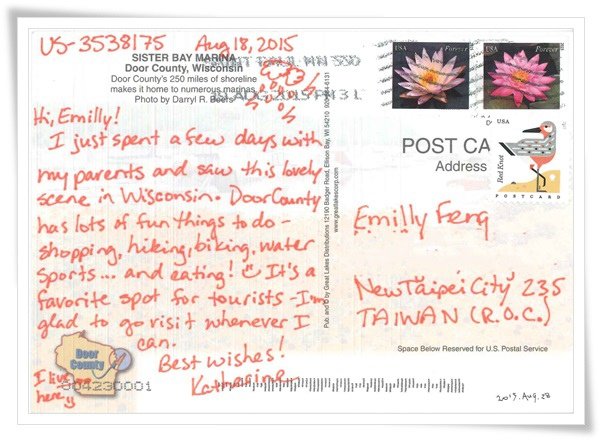 US-3538175 Aug 18, 2015
SISTER BAY MARINA
Door County, Wisconsin
Door County's 250 miles of shoreline
makes it home to numerous marinas.
Photo by Darryl R. Beers
PAUL MN 550
19 AUG 2015 PM 3 L
Hi, Emilly!
I just spent a few days with
my parents and saw this lovely
scene in Wisconsin. Door County
has lots of fun things to do -
shopping, hiking, biking, water
sports... and eating! It's a
favorite spot for tourists - I'm
glad to go visit whenever I
can.
Best wishes!
Katharine
Door
County
I live
here
604230001
Pub and © by Great Lakes Distributions 12190 Badger Road, Ellison Bay, WI 54210
www.greatlakescorp.com
USA Forever
USA Forever
USA
Red Knot
POSTCARD
POST CA
Address
Emilly Feng
New Taipei City 235
TAIWAN (R.O.C.)
Space Below Reserved for U.S. Postal Service
2015. Aug. 28